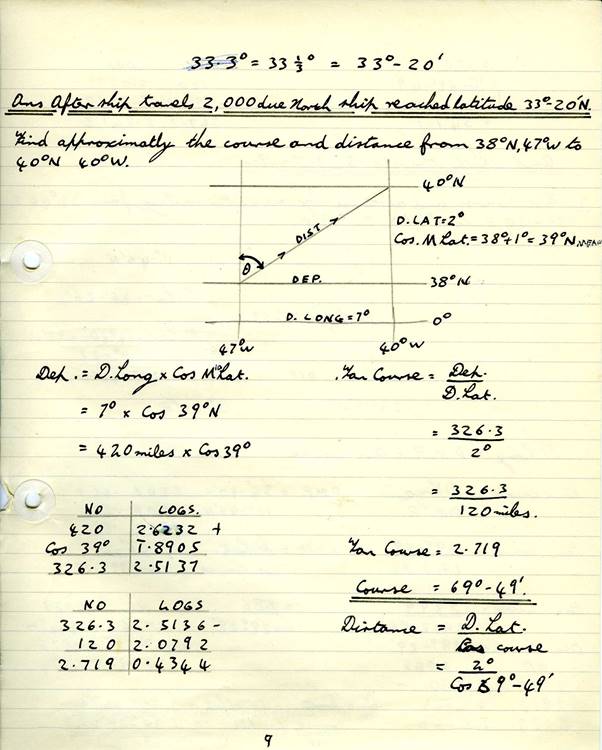 33·3° = 33 1/3° = 33°-20'
Ans After ship travels 2,000 due North ship reached latitude 33°-20'N.
Find approximatly the course and distance from 38°N, 47°W to
40°N 40°W.
40°N
D.LAT=2°
Cos. M Lat.=38°+1°= 39°N
DIST
θ
DEP.
38°N
D. LONG=7°
0°
47°W
40°W
Dep. = D.Long x Cos M Lat.
= 7° x Cos 39°N
= 420 miles x Cos 39°
Tan Course = Dep.
D.Lat.
= 326·3
2°
= 326·3
120 miles.
Tan Course = 2.719
Course = 69°-49'.
Distance = D. Lat.
Cos course
= 2°
Cos 69°-49'
NO LOGS.
420 2·6232 +
Cos 39° 1̄·8905
326·3 2·5137
NO LOGS
326·3 2·5136 -
120 2·0792
2·719 0·4344
9